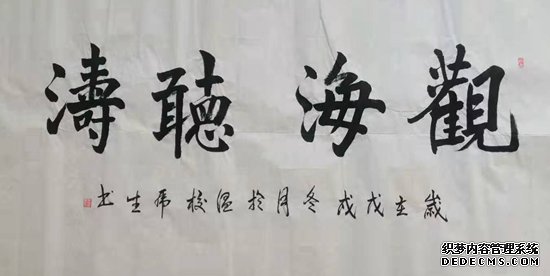 觀海聽濤
歲在戊戌冬月於温校 生书
织梦内容管理系统
DEDECMS.COM